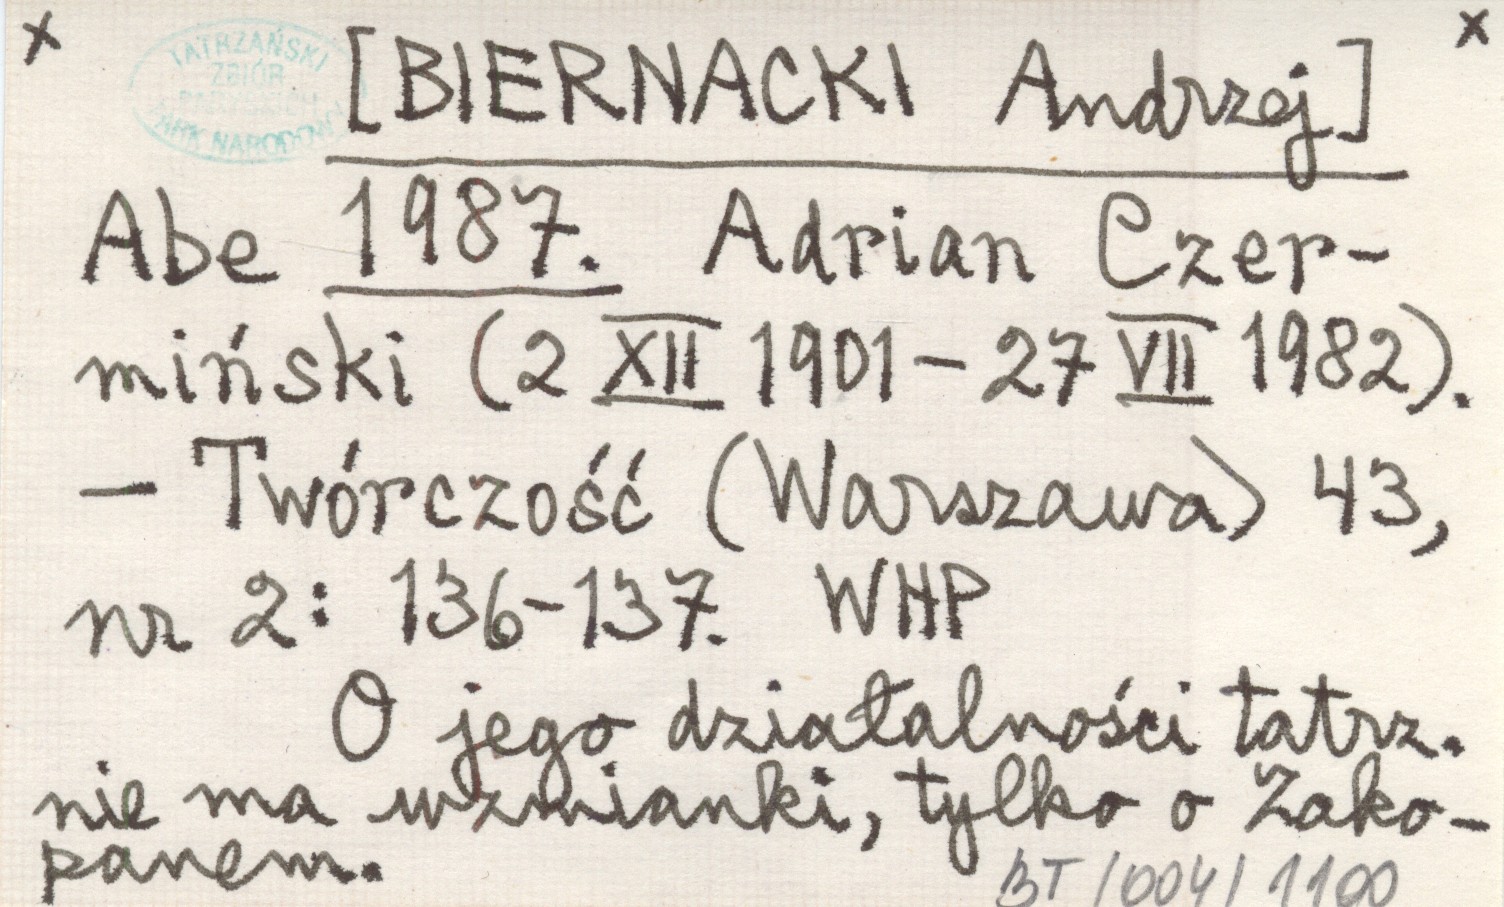 x x
TATRZAŃSKI
ZBIÓR
PARK NARODOWY
[BIERNACKI Andrzej]
Abe 1987. Adrian Czer-
miński (2 XII 1901 – 27 VII 1982).
— Twórczość (Warszawa) 43,
nr 2: 136-137. WHP
O jego działalności tatrz.
nie ma wzmianki, tylko o Zako-
panem.
BT/004/1100